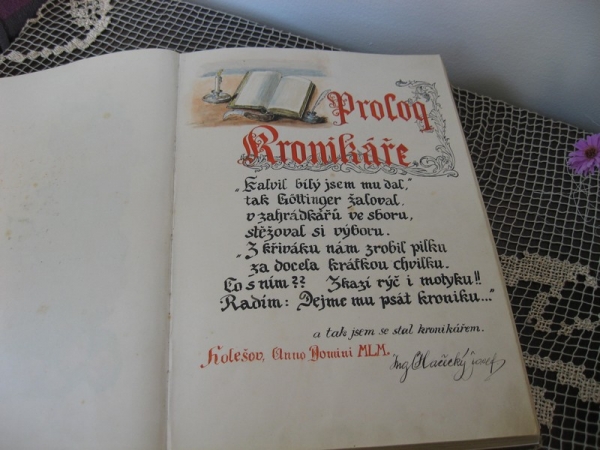 Prolog
Kronikáře.
„Kalvil bílý jsem mu dal,"
tak Göttinger žaloval.
v zahrádkářů ve sboru,
stěžoval si výboru.
„Z křiváku nám zrobil pilku
za docela krátkou chvilku.
Co s ním?? Zkazí rýč i motyku!!
Radím: Dejme mu psát kroniku..."
a tak jsem se stal kronikářem.
Holešov, Anno Domini MLM.
Ing